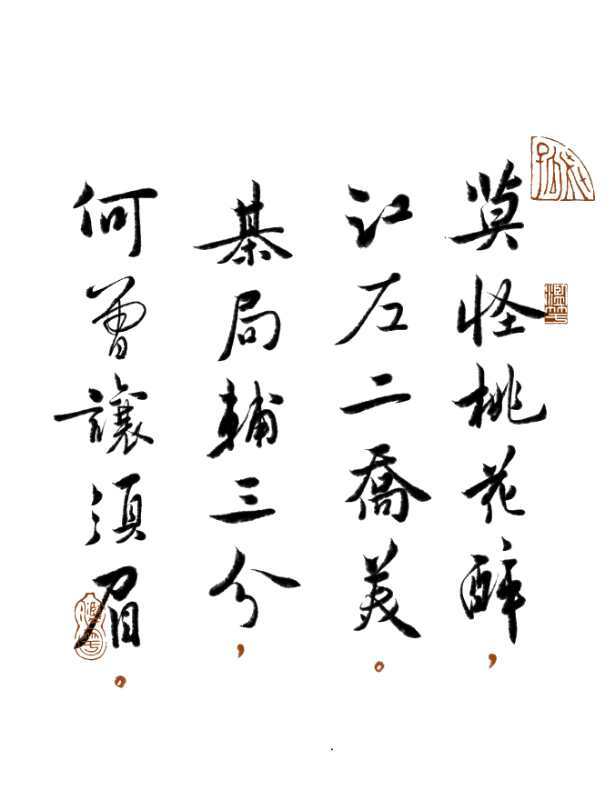 莫怪桃花醉，
江左二喬美。
棊局輔三分，
何曾讓須眉。